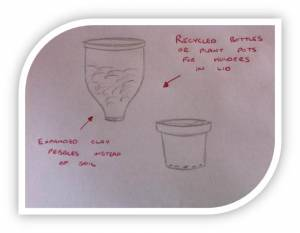 RECYCLED BOTTLES
OR PLANT POTS
FOR HOLDERS
IN LID
EXPANDED CLAY
PEBBLES INSTEAD
OF SOIL